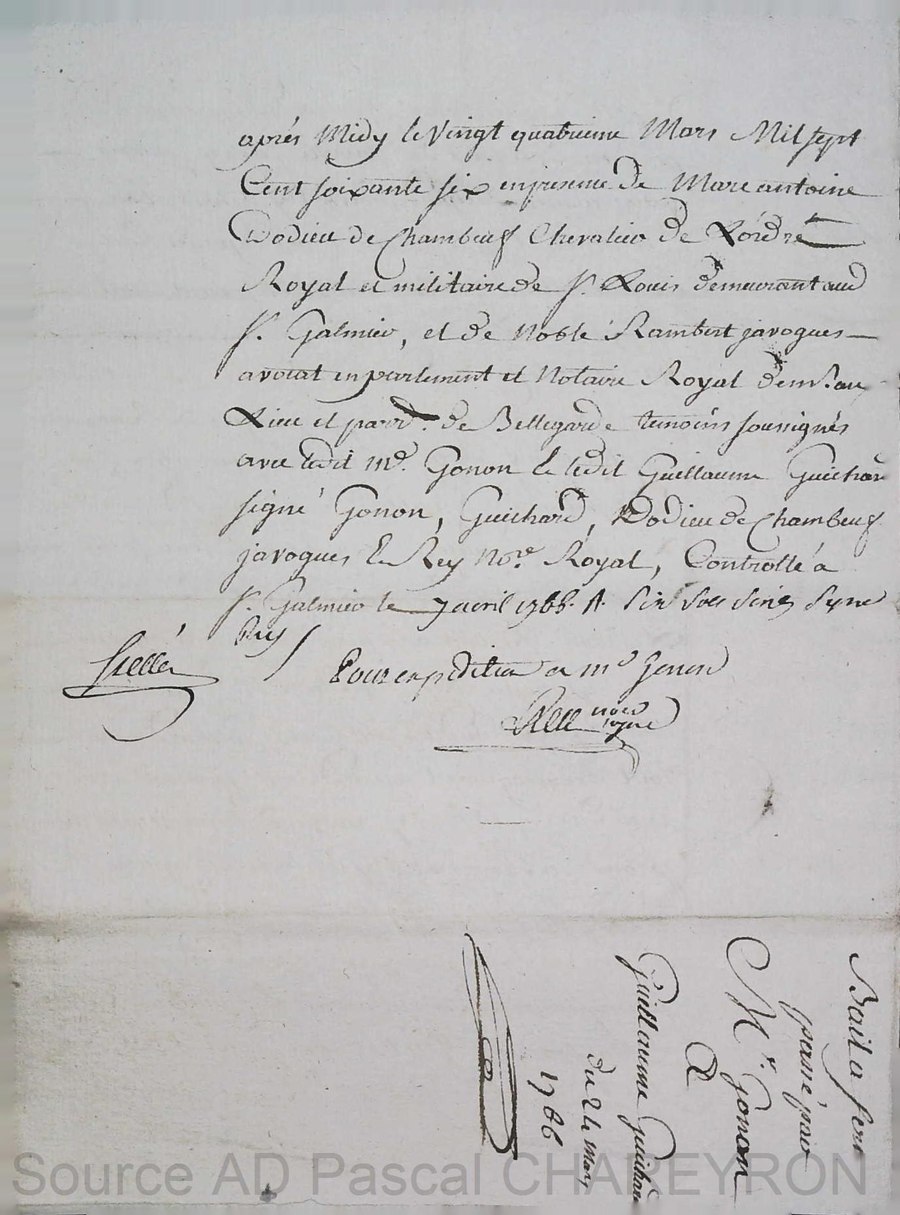 après Midy le Vingt quatrieme Mars Mil sept
Cent soixante six en presence de Marc antoine
Dodieu de Chambeuf Chevalier de L'ordre
Royal et militaire de St. Louis demeurant aud
St. Galmier, et de Noble Rambert javogues
avocat en parlement et Notaire Royal
Lieu et parr. de Bellegarde temoins soussignés
avec ledit Me. Gonon le ledit Guillaume Guichard
signé Gonon, Guichard, Dodieu de Chambeuf
javogues & Rey Nore. Royal, Controllé a
St. Galmier le 7 avril 1766. R. Six sols signé
Rey
Scellé
Pour expedition a me Gonon
Bail a ferme
passé par
Mr. Gonon
A
Guillaume Guichard
du 24 Mars
1766
Source AD Pascal CHAREYRON